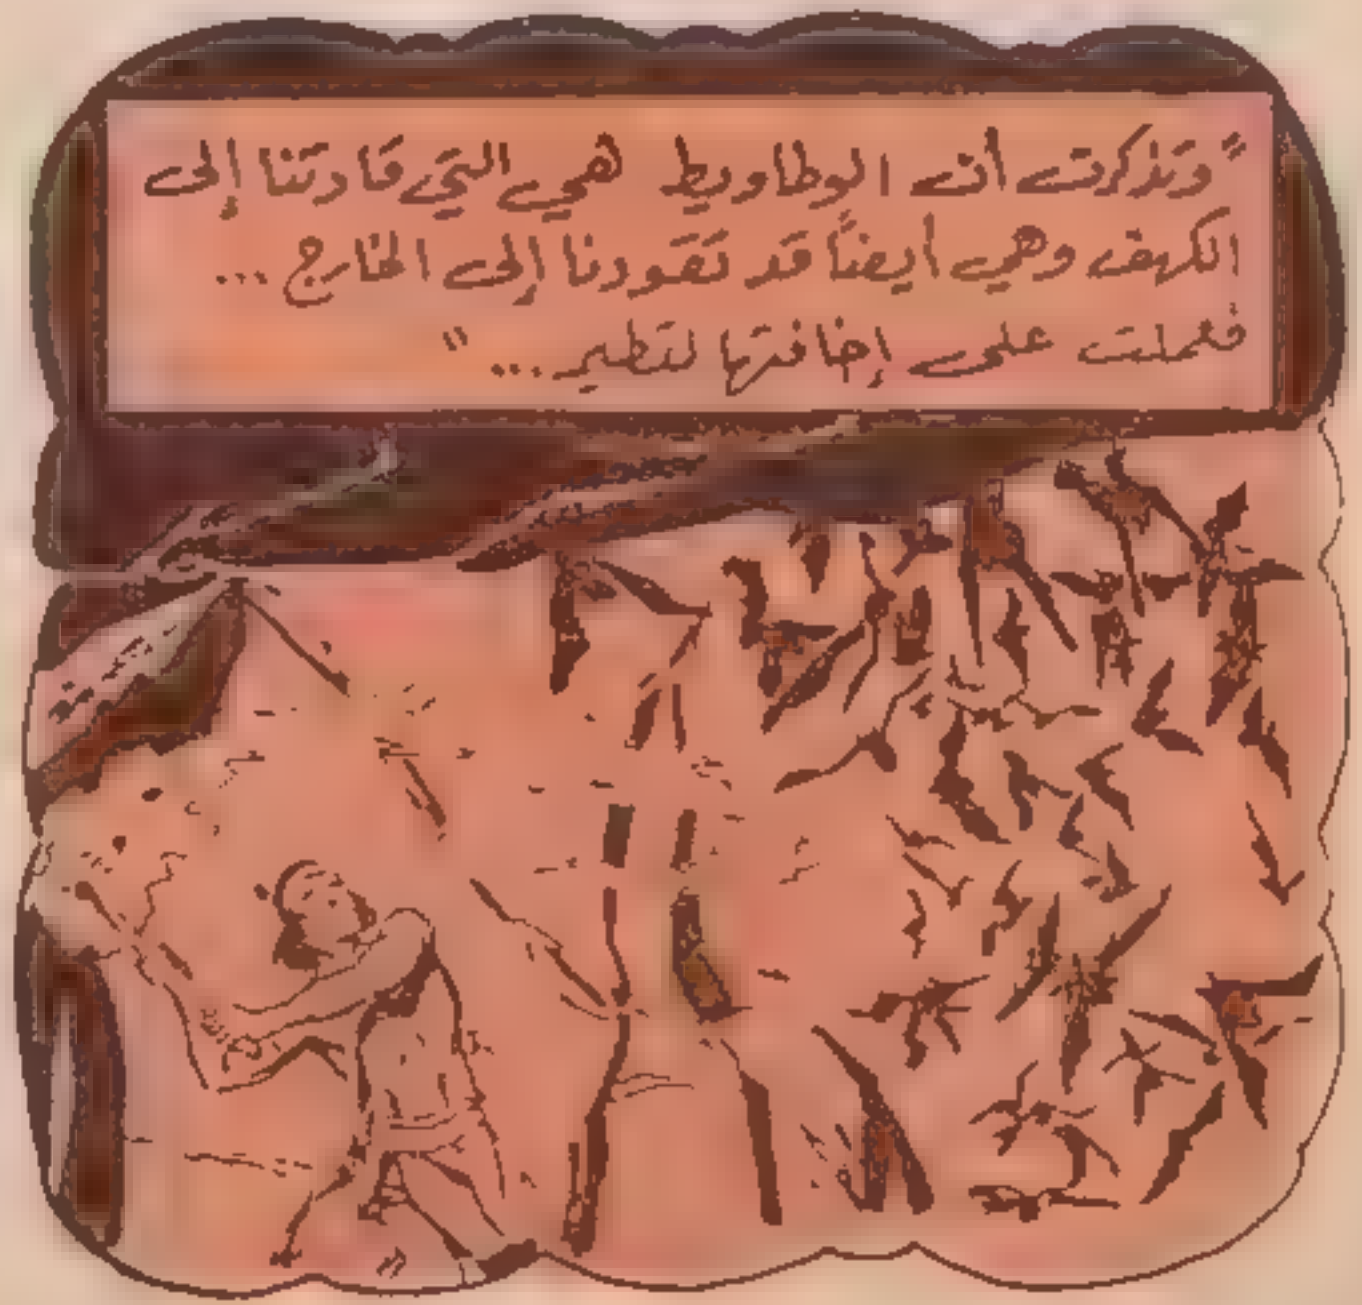 "وتذكرت أن الوطاويط هي التي قادتنا إلى
الكهف وهي أيضاً قد تقودنا إلى الخارج ...
فعملت على إخافتها لتطير ... "